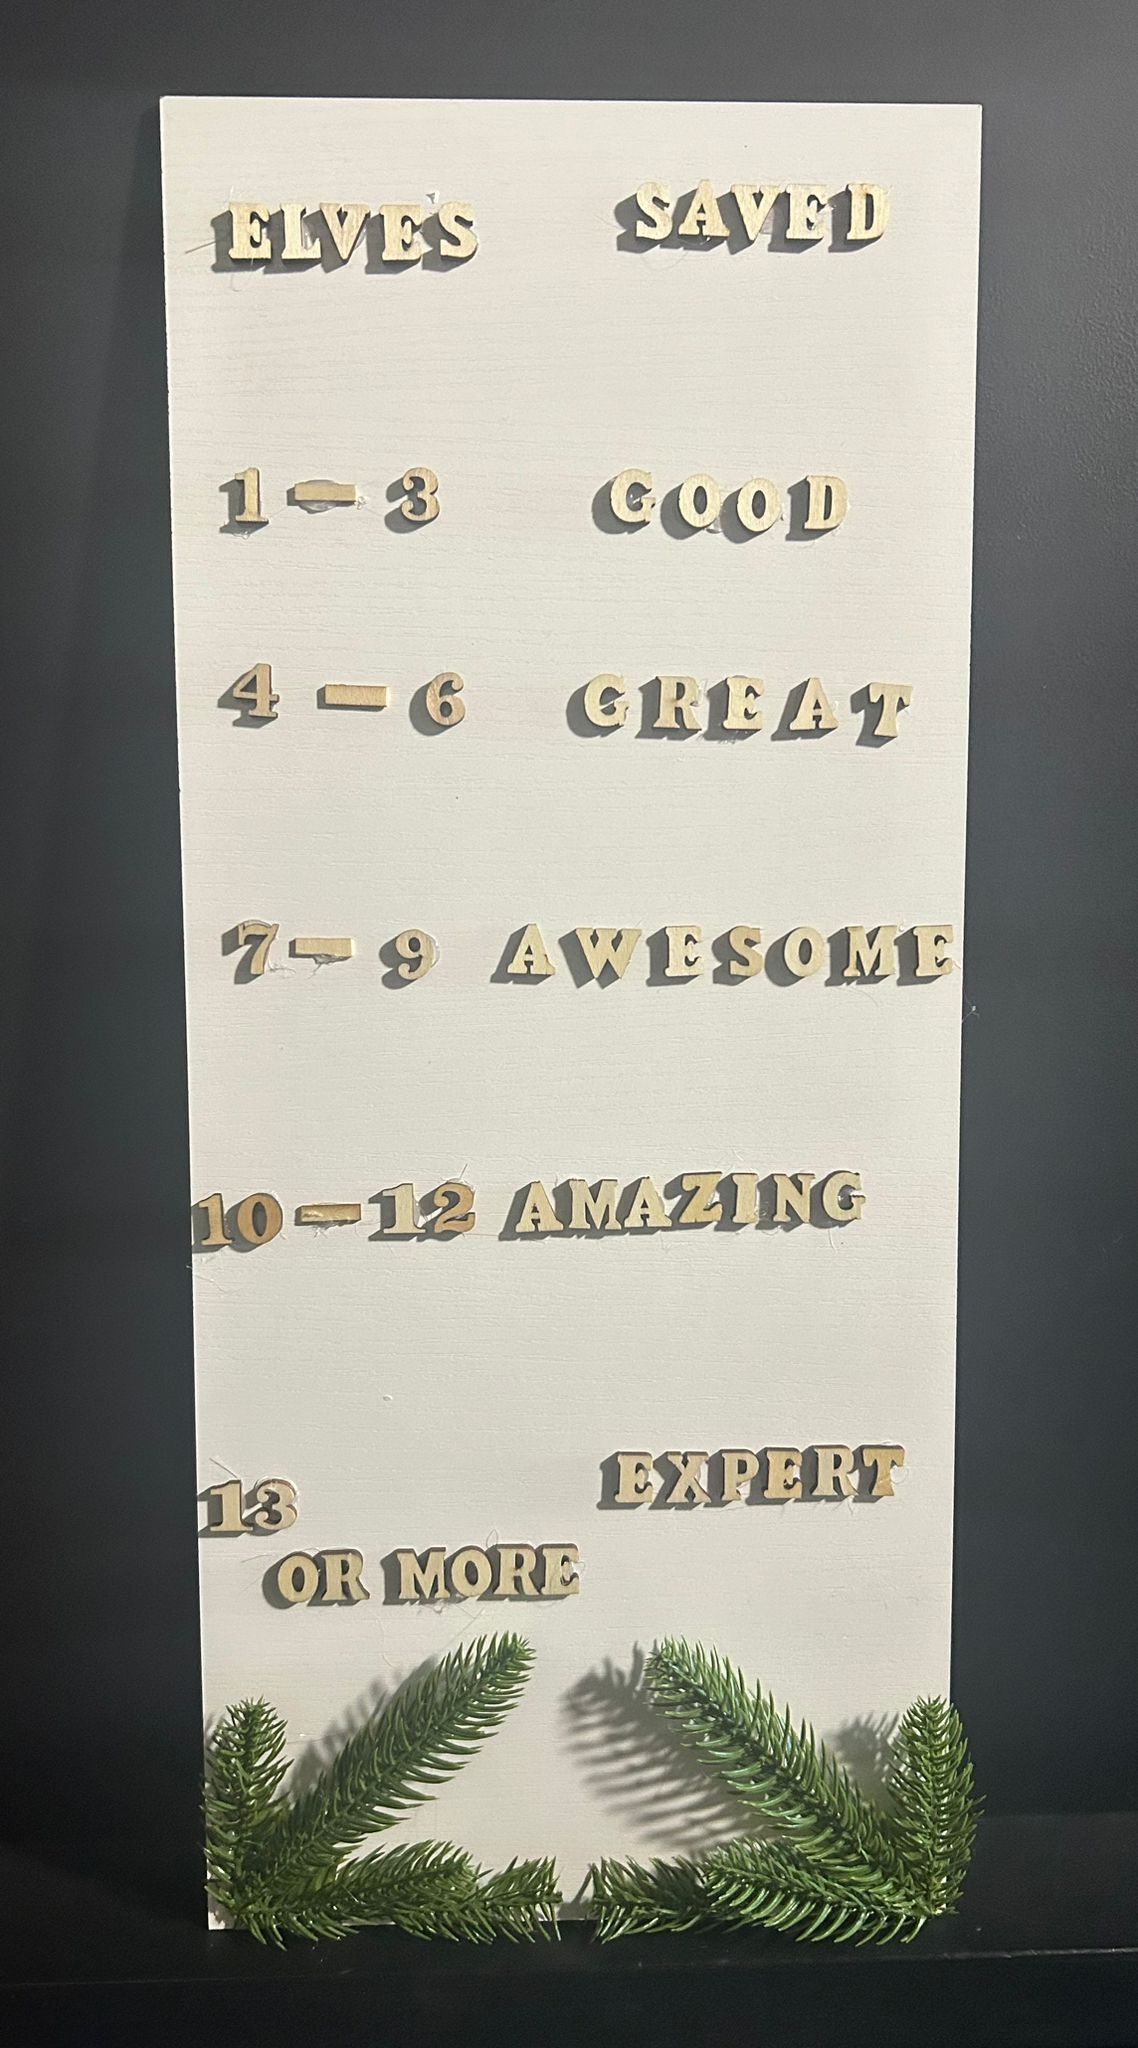 ELVES SAVED
1 - 3 GOOD
4 - 6 GREAT
7 - 9 AWESOME
10 - 12 AMAZING
13 EXPERT
OR MORE